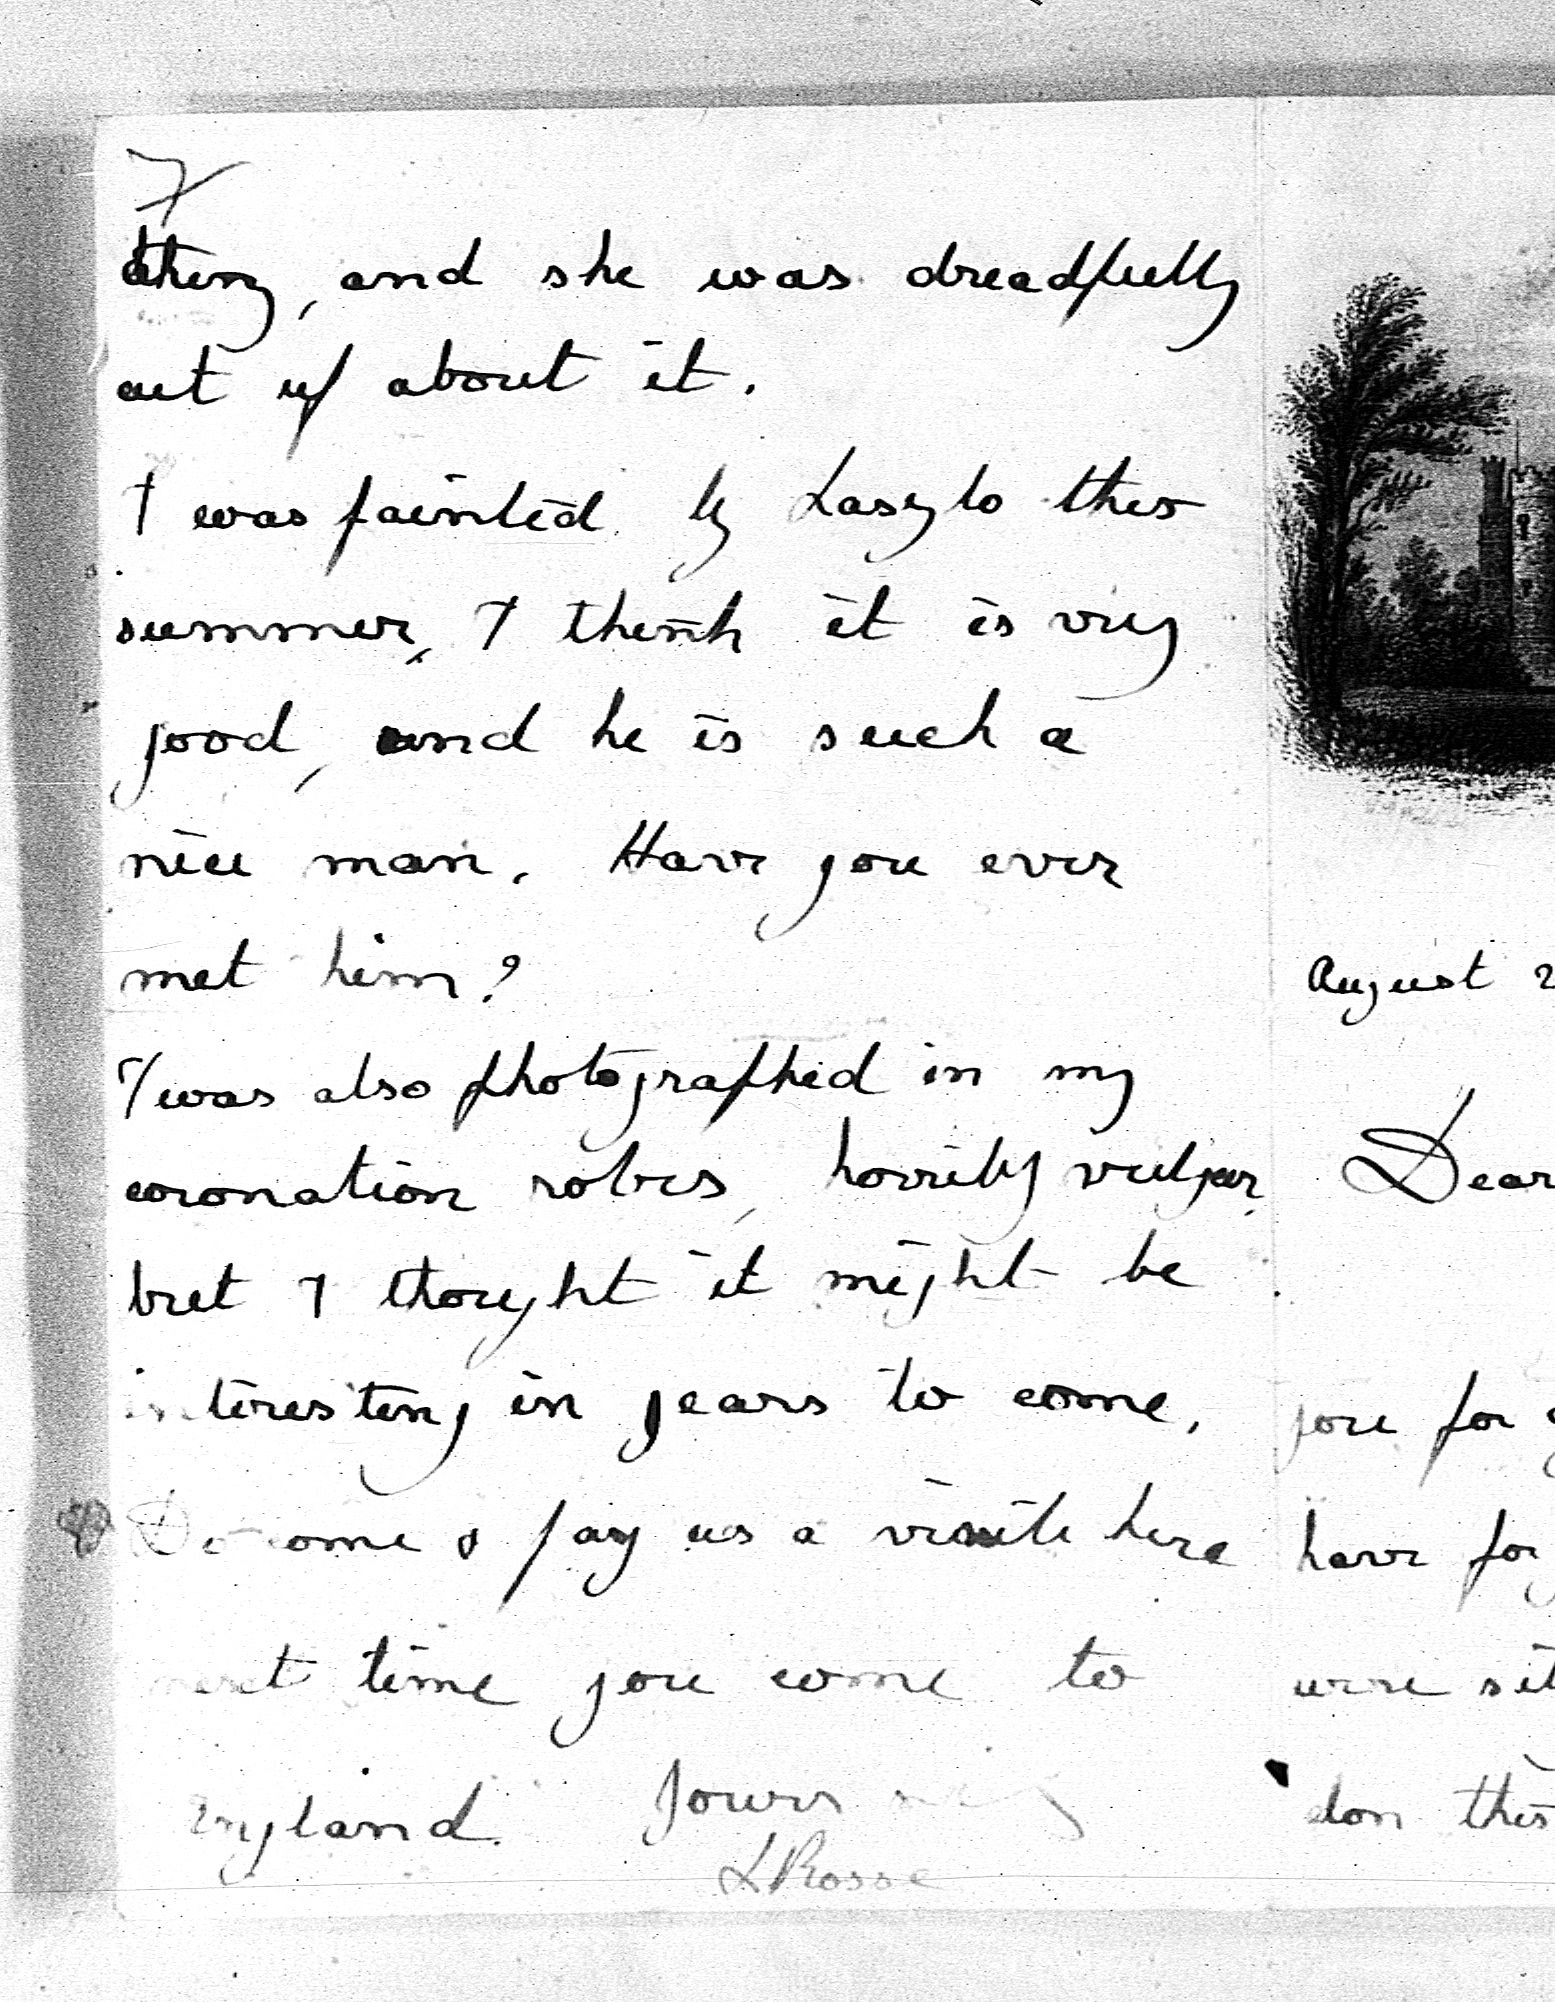 7
thing, and she was dreadfully
cut up about it.
I was painted by Laszlo this
summer, I think it is very
good, and he is such a
nice man. Have you ever
met him?
I was also photographed in my
coronation robes, horribly vulgar,
but I thought it might be
interesting in years to come.
Do come & pay us a visite here
next time you come to
England. Yours
LRosse
August 2
Dear
you for
have for
were sit
don this